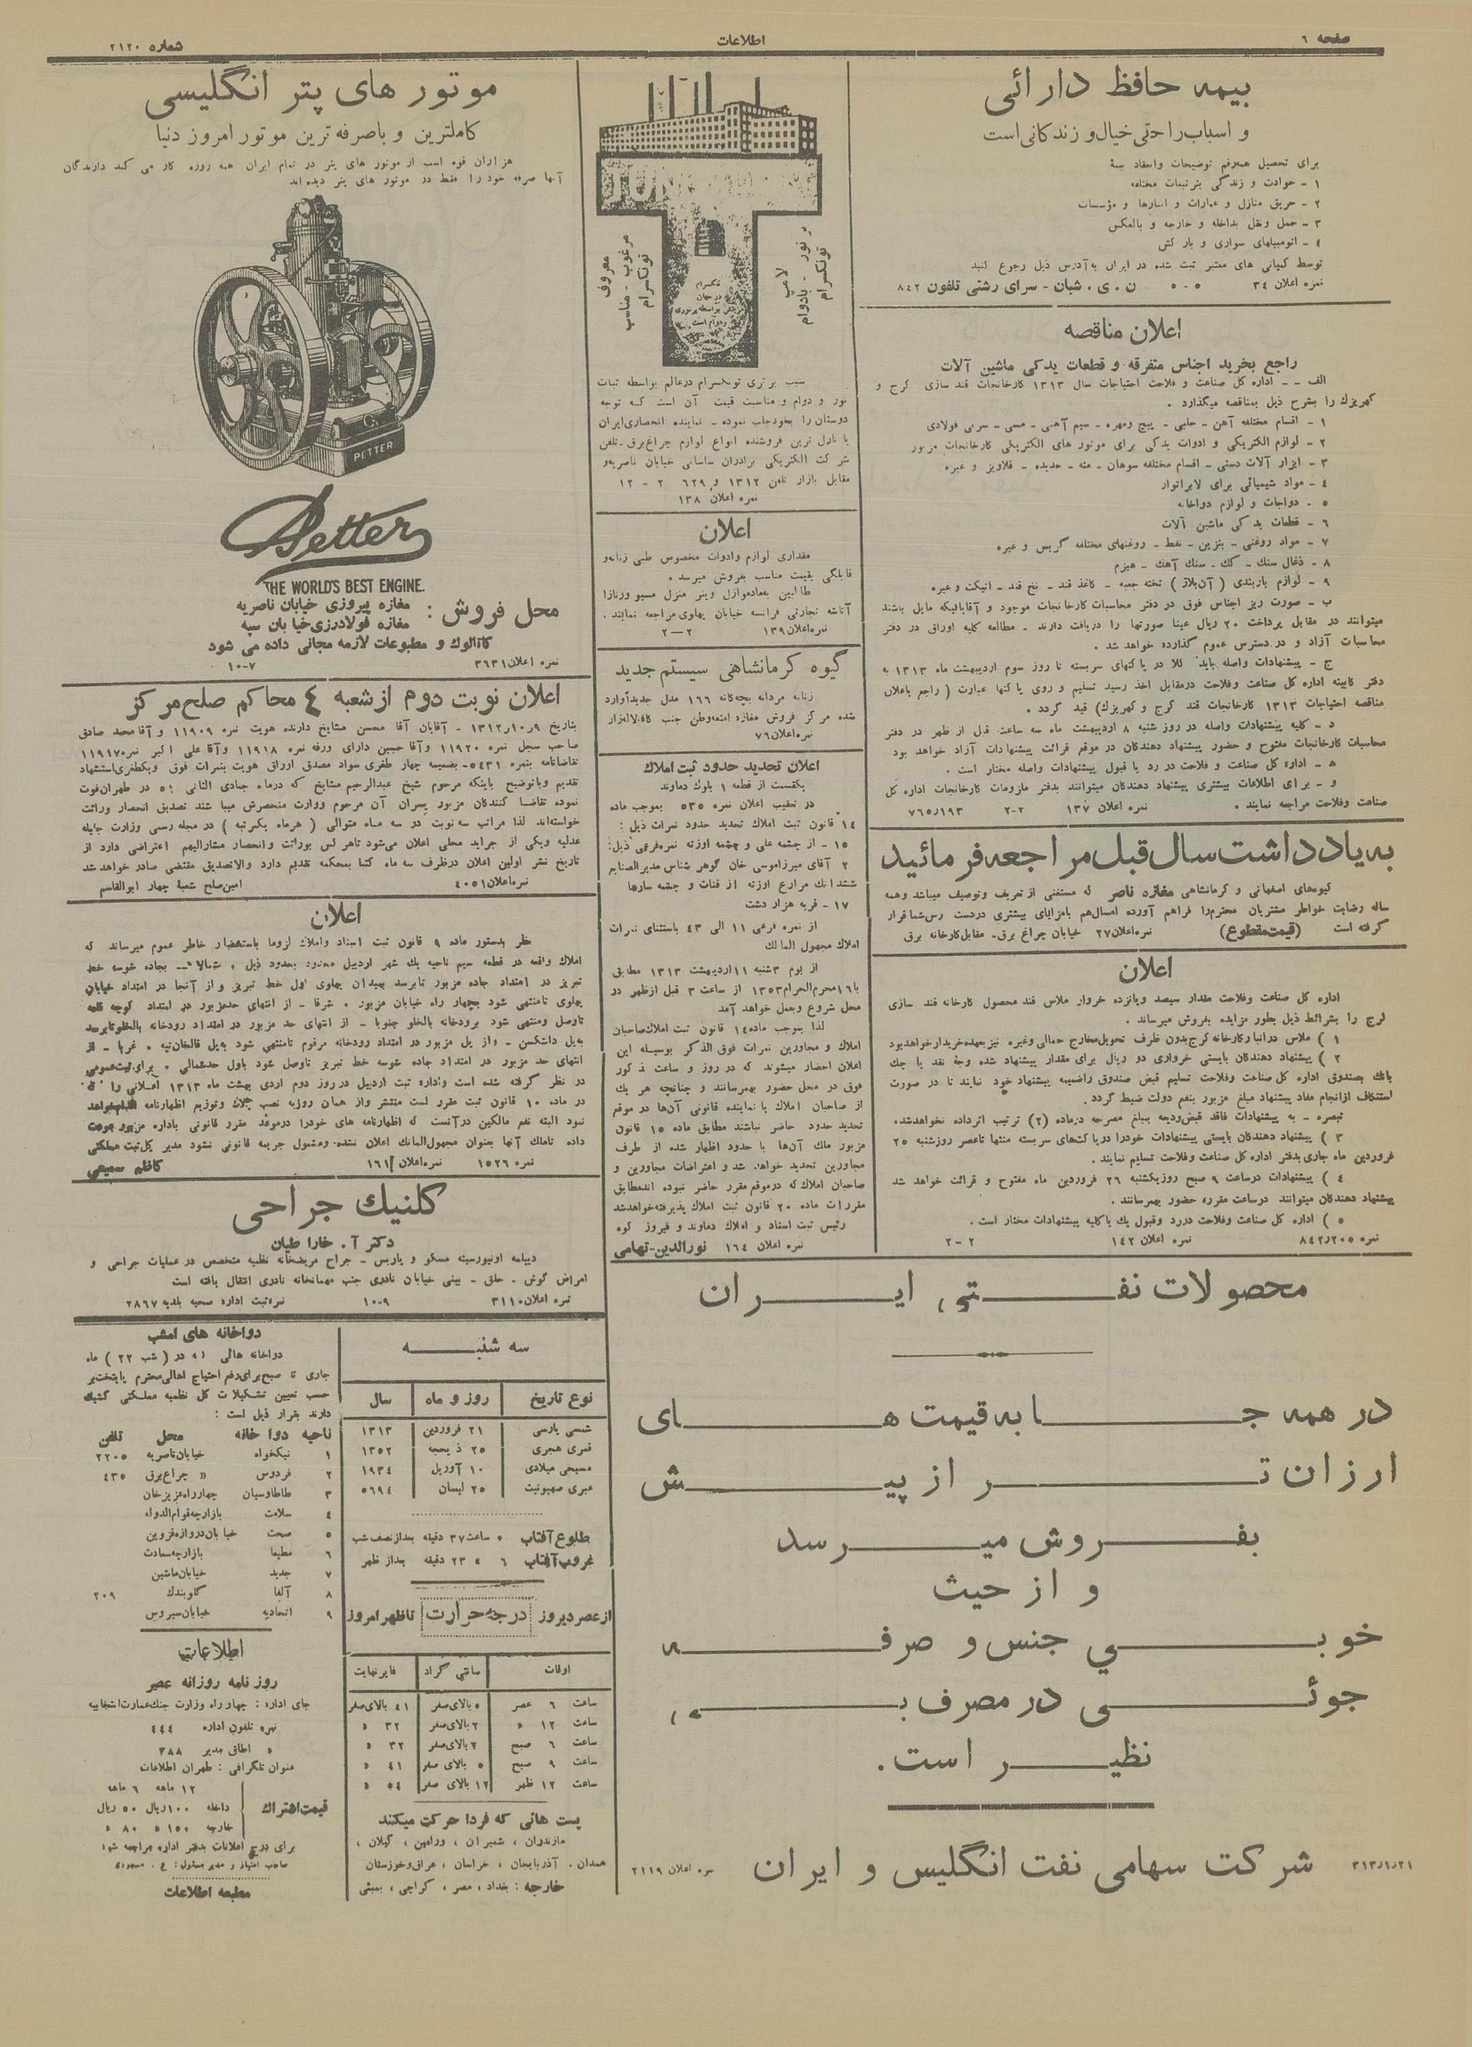 صفحه ٦
اطلاعات
شماره ۲۱۲۰
بیمه حافظ دارائی
و اسباب راحتی خیال و زندگانی است
برای تحصیل همه‌قسم توضیحات واسقاد بیمهٔ
۱ - حوادث و زندگی بترتیبات مختلفه
۲ - حریق منازل و عمارات و انبارها و مؤسسات
۳ - حمل ونقل بداخله و خارجه و بالعکس
٤ - اتومبیلهای سواری و بارکش
توسط کمپانی های معتبر ثبت شده در ایران به‌آدرس ذیل رجوع کنید
نمره اعلان ۳٤ ۵-۵ ن . ی . شبان - سرای رشتی تلفون ۸٤۲
اعلان مناقصه
راجع بخرید اجناس متفرقه و قطعات یدکی ماشین آلات
الف - - اداره کل صناعت و فلاحت احتیاجات سال ۱۳۱۳ کارخانجات قند سازی کرج و
کهریزك را بشرح ذیل بمناقصه میگذارد .
۱ - اقسام مختلفه آهن - حلبی - پیچ ومهره - سیم آهنی - مسی - سربی فولادی
۲ - لوازم الکتریکی و ادوات یدکی برای موتور های الکتریکی کارخانجات مزبور
۳ - ابزار آلات دستی - اقسام مختلفه سوهان - مته - حدیده - قلاویز و غیره
٤ - مواد شیمیائی برای لابراتوار
۵ - دواجات و لوازم دواخانه
٦ - قطعات یدکی ماشین آلات
۷ - مواد روغنی - بنزین - نفط - روغنهای مختلفه گریس و غیره
۸ - ذغال سنك - كك - سنك آهك - هیزم
۹ - لوازم باربندی ( آن‌بلاژ ) تخته جعبه - کاغذ قند - نخ قند - اتیکت و غیره
ب - صورت ریز اجناس فوق در دفتر محاسبات کارخانجات موجود و آقایانیکه مایل باشند
میتوانند در مقابل پرداخت ۲۰ ریال عینا صورتها را دریافت دارند . مطالعه کلیه اوراق در دفتر
محاسبات آزاد و در دسترس عموم گذارده خواهد شد .
ج - پیشنهادات واصله باید کلا در پاکتهای سربسته تا روز سوم اردیبهشت ماه ۱۳۱۳ به
دفتر کابینه اداره کل صناعت وفلاحت درمقابل اخذ رسید تسلیم و روی پاکتها عبارت ( راجع باعلان
مناقصه احتیاجات ۱۳۱۳ کارخانجات قند کرج و کهریزك ) قید گردد .
د - کلیه پیشنهادات واصله در روز شنبه ۸ اردیبهشت ماه سه ساعت قبل از ظهر در دفتر
محاسبات کارخانجات مفتوح و حضور پیشنهاد دهندگان در موقع قرائت پیشنهادات آزاد خواهد بود
ه - اداره کل صناعت و فلاحت در رد یا قبول پیشنهادات واصله مختار است .
و - برای اطلاعات بیشتری پیشنهاد دهندگان میتوانند بدفتر ملزومات کارخانجات اداره کل
صناعت وفلاحت مراجعه نمایند . نمره اعلان ۱۳۷ ۲-۲ ۷٦۵ر۱۹۳
به یادداشت سال قبل مراجعه فرمائید
گیوه‌های اصفهانی و کرمانشاهی مغازه ناصر که مستغنی از تعریف وتوصیف میباشد وهمه
ساله رضایت خواطر مشتریان محترم‌را فراهم آورده امسال‌هم بامزایای بیشتری دردست رس‌شماقرار
گرفته است (قیمت مقطوع) نمره‌اعلان۲۷ خیابان چراغ برق- مقابل کارخانه برق
اعلان
اداره کل صناعت وفلاحت مقدار سیصد وپانزده خروار ملاس قند محصول کارخانه قند سازی
کرج را بشرائط ذیل بطور مزایده بفروش میرساند .
۱ ) ملاس درانبارکارخانه کرج‌بدون ظرف تحویل‌مخارج حمالی‌وغیره نیزبعهده‌خریدارخواهدبود
۲ ) پیشنهاد دهندگان بایستی خرواری دو ریال برای مقدار پیشنهاد شده وجه نقد یا چك
بانك بصندوق اداره کل صناعت وفلاحت تسلیم قبض صندوق راضمیمه پیشنهاد خود نمایند تا در صورت
استنکاف ازانجام مفاد پیشنهاد مبلغ مزبور بنفع دولت ضبط گردد .
تبصره - به پیشنهادات فاقد قبض‌ودیعه بمبلغ مصرحه درماده (۲) ترتیب اثرداده نخواهدشد.
۳ ) پیشنهاد دهندگان بایستی پیشنهادات خودرا درپاکت‌های سربسته منتها تاعصر روزشنبه ۲۵
فروردین ماه جاری بدفتر اداره کل صناعت وفلاحت تسلیم نمایند .
٤ ) پیشنهادات درساعت ۹ صبح روزیکشنبه ۲٦ فروردین ماه مفتوح و قرائت خواهد شد
پیشنهاد دهندگان میتوانند درساعت مقرره حضور بهمرسانند .
۵ ) اداره کل صناعت وفلاحت دررد وقبول یك یاکلیه پیشنهادات مختار است .
نمره ۸٤۲ر۲۰۵ نمره اعلان ۱٤۲ ۲-۲
معروف
مرغوب - مناسب
تونگسرام
لامپ
پر نور - بادوام
تونگسرام
سبب برتری تونگسرام درعالم بواسطه ثبات
نور و دوام و مناسبت قیمت آن است که توجه
دوستان را بخودجلب نموده - نماینده انحصاری‌ایران
با نازل ترین فروشنده انواع لوازم چراغ‌برق-تلفن
شرکت الکتریکی برادران ساسانی خیابان ناصریه‌و
مقابل بازار تلفن ۱۳۱۲ و ٦۲۹ ۲ - ۱۲
نمره اعلان ۱۳۸
اعلان
مقداری لوازم وادوات مخصوص طبی زنانه‌و
قابلگی بقیمت مناسب بفروش میرسد .
طالبین به‌مادموازل وینر منزل مسیو ورنازا
آتاشه تجارتی فرانسه خیابان پهلوی مراجعه نمایند .
نمره‌اعلان۱۳۹ ۲-۲
گیوه کرمانشاهی سیستم جدید
زنانه مردانه بچه‌گانه ۱٦٦ مدل جدیداوارد
شده مرکز فروش مغازه امتعه‌وطن جنب کافه‌لاله‌زار
نمره‌اعلان ۷٦
اعلان تحدید حدود ثبت املاك
یکقسمت از قطعه ۱ بلوك دماوند
در تعقیب اعلان نمره ۵۳۵ بموجب ماده
۱٤ قانون ثبت املاك تحدید حدود نمرات ذیل :
۱۵ - از چشمه علی و چشمه اوزنه نمره‌فرعی ذیل:
۲ آقای میرزاموسی خان گوهر شناس مدیرالصنایع
ششدانك مزارع اوزنه از قنات و چشمه سارها
۱۷ - قریه هزار دشت
از نمره فرعی ۱۱ الی ٤۳ باستثنای نمرات
املاك مجهول المالك
از یوم ۳شنبه ۱۱اردیبهشت ۱۳۱۳ مطابق
با۱٦محرم‌الحرام۱۳۵۳ از ساعت ۳ قبل ازظهر در
محل شروع وبعمل خواهد آمد
لذا بموجب ماده۱٤ قانون ثبت املاك‌صاحبان
املاك و مجاورین نمرات فوق الذکر بوسیله این
اعلان احضار میشوند که در روز و ساعت مذکور
فوق در محل حضور بهمرسانند و چنانچه هر یك
از صاحبان املاك یا نماینده قانونی آن‌ها در موقع
تحدید حدود حاضر نباشند مطابق ماده ۱۵ قانون
مزبور ملك آن‌ها با حدود اظهار شده از طرف
مجاورین تحدید خواهد شد و اعتراضات مجاورین و
صاحبان املاك که درموقع مقرر حاضر نبوده اندمطابق
مقررات ماده ۲۰ قانون ثبت املاك پذیرفته‌خواهدشد
رئیس ثبت اسناد و املاك دماوند و فیروز کوه
نمره اعلان ۱٦٤ نورالدین-تهامی
موتور های پتر انگلیسی
کاملترین و باصرفه ترین موتور امروز دنیا
هزاران قوه اسب از موتور های پتر در تمام ایران همه روزه کار می کند دارندگان
آنها صرفه خود را فقط در موتور های پتر دیده اند
PETTER
Petter
THE WORLD'S BEST ENGINE.
محل فروش :
مغازه پیروزی خیابان ناصریه
مغازه فولادرزی خیابان سپه
کاتالوك و مطبوعات لازمه مجانی داده می شود
نمره اعلان۳٦۳۱ ۷-۱۰
اعلان نوبت دوم از شعبه ٤ محاکم صلح مرکز
بتاریخ ۹ر۱۰ر۱۳۱۲ - آقایان آقا محسن مشایخ دارنده هویت نمره ۱۱۹۰۹ و آقا محمد صادق
صاحب سجل نمره ۱۱۹۲۰ وآقا حسین دارای ورقه نمره ۱۱۹۱۸ وآقا علی اکبر نمره ۱۱۹۱۷
تقاضانامه بنمره ۵٤۳۱- بضمیمه چهار طغری سواد مصدق اوراق هویت بنمرات فوق ویکطغری‌استشهاد
تقدیم وباتوضیح باینکه مرحوم شیخ عبدالرحیم مشایخ که درماه جمادی الثانی ۵۱ در طهران‌فوت
نموده تقاضا کنندگان مزبور پسران آن مرحوم ووارث منحصرش میباشند تصدیق انحصار وراثت
خواسته‌اند لذا مراتب سه نوبت در سه ماه متوالی ( هرماه یکمرتبه ) در مجله رسمی وزارت جلیله
عدلیه ویکی از جراید محلی اعلان می‌شود تاهر کس بوراثت وانحصار مشارالیهم اعتراضی دارد از
تاریخ نشر اولین اعلان درظرف سه ماه کتبا بمحکمه تقدیم دارد والاتصدیق مقتضی صادر خواهدشد
نمره‌اعلان٤۰۵۱ امین‌صلح شعبهٔ چهار ابوالقاسم
اعلان
نظر بدستور ماده ۹ قانون ثبت اسناد واملاك لزوما باستحضار خاطر عموم میرساند که
املاك واقعه در قطعه سیم ناحیه یك شهر اردبیل محدود بحدود ذیل . شمالا -- بجاده شوسه خط
تبریز در امتداد جاده مزبور تابرسد بمیدان پهلوی اول خط تبریز و از آنجا در امتداد خیابان
پهلوی تامنتهی شود بچهار راه خیابان مزبور . شرقا - از انتهای حدمزبور در امتداد کوچه قلعه
تاوصل ومنتهی شود برودخانه بالخلو جنوبا - از انتهای حد مزبور در امتداد رودخانه بالخلوتابرسد
به‌پل داشکسن - واز پل مزبور در امتداد رودخانه مرقوم تامنتهی شود به‌پل قالخان‌تپه . غربا - از
انتهای حد مزبور در امتداد جاده شوسه خط تبریز تاوصل شود باول حدشمالی . برای‌ثبت‌عمومی
در نظر گرفته شده است واداره ثبت اردبیل در روز دوم اردی بهشت ماه ۱۳۱۳ اعلانی را که
در ماده ۱۰ قانون ثبت مقرر است منتشر واز همان روزبه نصب پلاك وتوزیع اظهارنامه اقدام‌خواهد
نمود البته نفع مالکین درآنست که اظهارنامه های خودرا درموعد مقرر قانونی باداره مزبور عودت
داده تاملك آنها بعنوان مجهول‌المالك اعلان نشده ومشمول جریمه قانونی نشود مدیر کل‌ثبت مملکتی
نمره ۱۵۲٦ نمره‌اعلان ۱٦۱ کاظم سمیعی
کلنیك جراحی
دکتر آ . خارا طیان
دیپلمه اونیورسیته مسکو و پاریس - جراح مریضخانه نظمیه متخصص در عملیات جراحی و
امراض گوش - حلق - بینی خیابان نادری جنب مهمانخانه نادری انتقال یافته است
نمره اعلان۳۱۱۰ ۹-۱۰ نمره‌ثبت اداره صحیه بلدیه ۲۸٦۷
سه شنبه
نوع تاریخ روز و ماه سال
شمسی پارسی ۲۱ فروردین ۱۳۱۳
قمری هجری ۲۵ ذیحجه ۱۳۵۲
مسیحی میلادی ۱۰ آوریل ۱۹۳٤
عبری صهیونیت ۲۵ نیسان ۵٦۹٤
طلوع آفتاب ۵ ساعت ۳۷ دقیقه بعداز نصف شب
غروب آفتاب ٦ » ۲۳ دقیقه بعداز ظهر
از عصر دیروز درجه حرارت تا ظهر امروز
اوقات سانتی گراد فارنهایت
ساعت ٦ عصر ۵ بالای صفر ٤۱ بالای صفر
ساعت ۱۲ » ۲ بالای صفر ۳۲ »
ساعت ٦ صبح ۲ بالای صفر ۳۲ »
ساعت ۹ صبح ۵ بالای صفر ٤۱ »
ساعت ۱۲ ظهر ۱۲ بالای صفر ۵٤ »
پست هائی که فردا حرکت میکنند
مازندران ، شمیران ، ورامین ، گیلان ،
همدان ، آذربایجان ، خراسان ، عراق وخوزستان
خارجه : بغداد ، مصر ، کراچی ، بمبئی
دواخانه های امشب
دواخانه هائی که در ( شب ۲۲ ) ماه
جاری تا صبح برای‌رفع احتیاج اهالی محترم پایتخت‌بر
حسب تعیین تشکیلات کل نظمیه مملکتی کشیك
دارند بقرار ذیل است :
ناحیه دواخانه محل تلفن
۱ نیکخواه خیابان ناصریه ۲۲۰۵
۲ فردوس » چراغ برق ٤۳۵
۳ طاطاوسیان چهارراه عزیزخان
٤ سلامت بازارچه قوام الدوله
۵ صحت خیابان دروازه قزوین
٦ عظیما بازارچه سعادت
۷ جدید خیابان ماشین
۸ آلفا گلوبندك ۲۰۹
۹ اتحادیه خیابان سیروس
اطلاعات
روزنامه روزانه عصر
جای اداره : چهارراه وزارت جنك عمارت انتخابیه
نمره تلفون اداره ٤٤٤
» اطاق مدیر ۳۸۸
عنوان تلگرافی : طهران اطلاعات
۱۲ ماهه ٦ ماهه
قیمت اشتراك داخله ۱۰۰ریال ۵۰ ریال
خارجه ۱۵۰ » ۸۰ »
برای درج اعلانات بدفتر اداره مراجعه شود
صاحب امتیاز و مدیر مسئول : ع . مسعودی
مطبعه اطلاعات
محصولات نفتی ایران
در همه جا به قیمت های
ارزان تر از پیش
بفروش میرسد
و از حیث
خوبی جنس و صرفه
جوئی در مصرف بی
نظیر است.
۳۱۳/۱/۲۱ شرکت سهامی نفت انگلیس و ایران نمره اعلان ۲۱۱۹